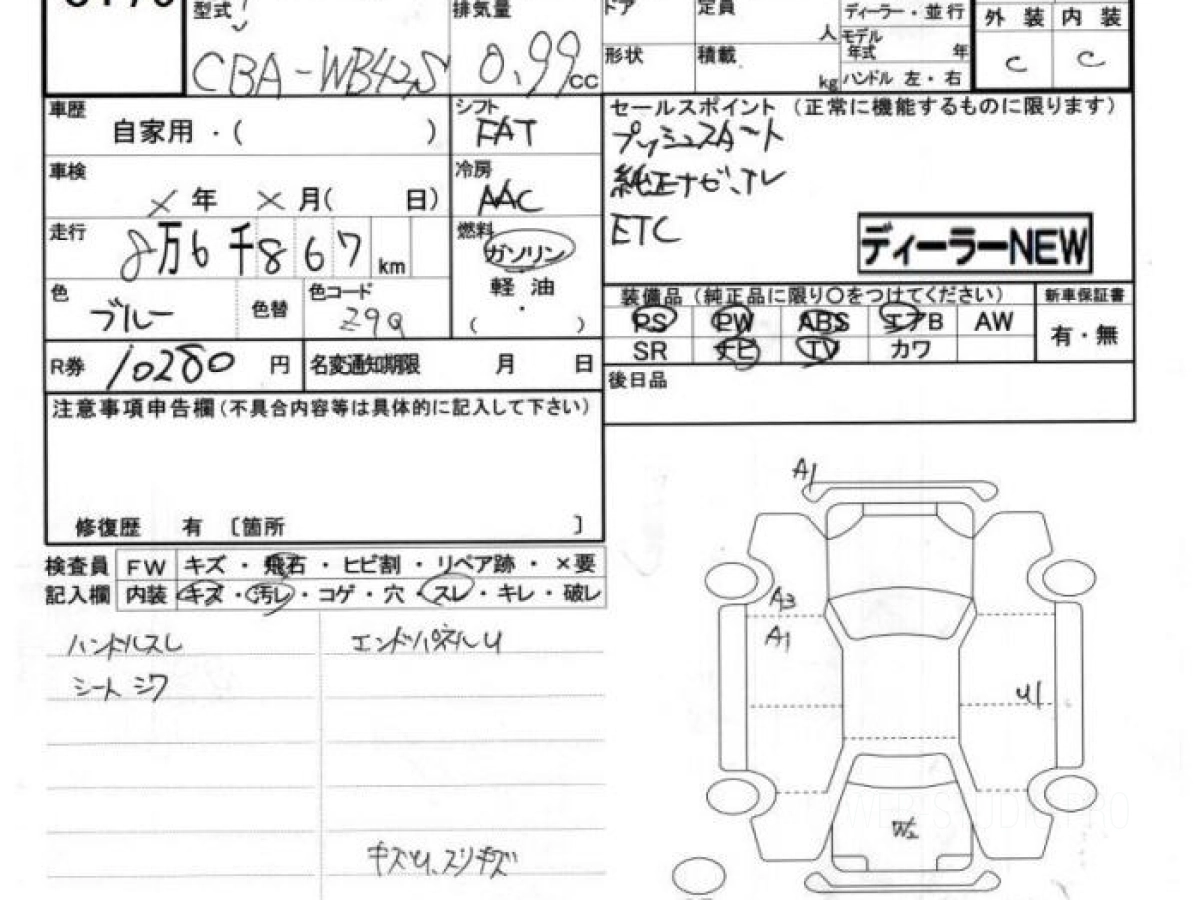 型式
CBA-WB42S
排気量
0.99 CC
ドア
定員
人
形状
積載
kg
ディーラー・並行
モデル年式 年
ハンドル 左・右
外装 内装
C C
車歴
自家用・( )
シフト
FAT
車検
× 年 × 月( 日)
冷房
AAC
走行
8万6千867 km
燃料
ガソリン
・
軽油
( )
色
ブルー
色替
色コード
Z9Q
R券 10280 円
名変通知期限 月 日
セールスポイント (正常に機能するものに限ります)
プッシュスタート
純正ナビ、TV
ETC
ディーラーNEW
装備品 (純正品に限り〇をつけてください)
PS PW ABS エアB AW
SR ナビ TV カワ
新車保証書
有・無
後日品
注意事項申告欄(不具合内容等は具体的に記入して下さい)
修復歴 有 〔箇所 〕
検査員 FW キズ・飛石・ヒビ割・リペア跡・×要
記入欄 内装 キズ・汚レ・コゲ・穴・スレ・キレ・破レ
ハンドルスレ
シート シワ
エンドパネルU
キズU、スリキズ
A1
A3
A1
U1
W2